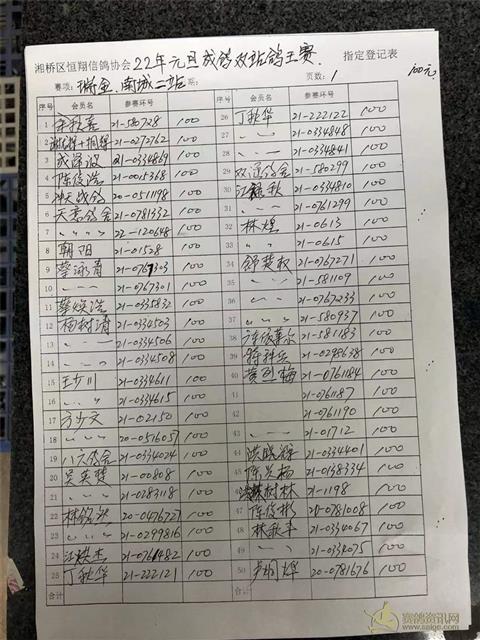 湘桥区恒翔信鸽协会22年元旦成鸽双站鸽王赛. 指定登记表
赛项: 瑞金.南城二站 系: 页数: 1 100元
序号 会员名 参赛环号
1 余秋喜 21-580728 100
2 21-0272762 100
3 成深波 21-0334869 100
4 陈俊浩 21-0015368 100
5 战鸽 20-0511198 100
6 天意鸽舍 21-0781332 100
7 〃 〃 〃 22-120648 100
8 朝阳 21-01528 100
9 蔡泳有 21-0767303 100
10 〃 〃 21-0767301 100
11 蔡焕浩 21-0335832 100
12 杨树清 21-0334503 100
13 〃 〃 21-0334506 100
14 〃 〃 21-0334508 100
15 王少川 21-0334611 100
16 〃 〃 21-0334615 100
17 方少文 21-002150 100
18 〃 〃 20-0516057 100
19 八六鸽舍 21-0334024 100
20 吴英楚 21-00808 100
21 〃 〃 21-0283118 100
22 20-0476727 100
23 〃 〃 21-0299816 100
24 江烘杰 21-0761482 100
25 丁秋华 21-222121 100
合计
序号 会员名 参赛环号
26 丁秋华 21-222122 100
27 〃 〃 21-0334848 100
28 〃 〃 21-0334841 100
29 双通鸽舍 21-580299 100
30 21-0334810 100
31 〃 〃 21-0761299 100
32 林煌 21-0613 100
33 〃 21-0615 100
34 舒楚钦 21-0767271 100
35 〃 〃 21-581109 100
36 〃 〃 21-0767233 100
37 〃 〃 21-580937 100
38 21-581183 100
39 21-0298638 100
40 黄烈梅 21-0761184 100
41 21-0761187 100
42 21-0761190 100
43 〃 〃 21-01712 100
44 洪晓锋 21-0334401 100
45 21-0138334 100
46 树林 21-1198 100
47 陈俊彬 20-0781008 100
48 林歆丰 21-0334067 100
49 〃 〃 21-0334075 100
50 卢桐烨 20-0781676 100
合计
赛鸽资讯网
www.saige.com